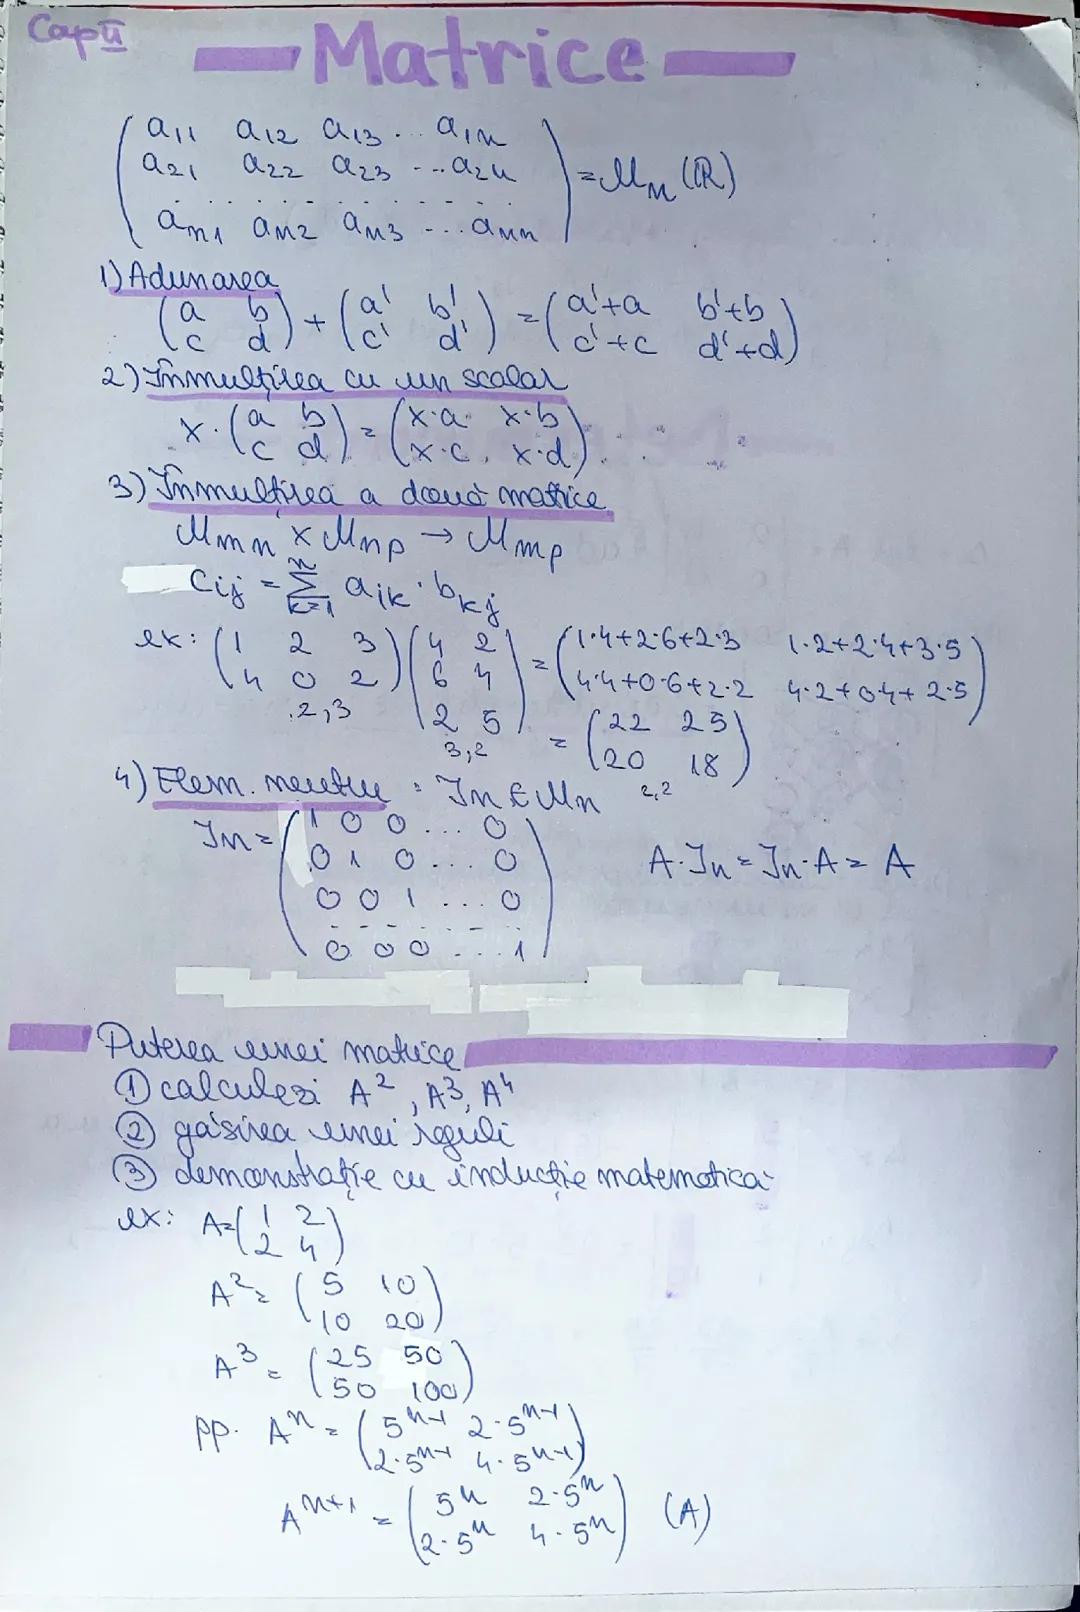 Cap II
Matrice
a11 a12 a13 ... a1n
a21 a22 a23 ... a2n = Mn (R)
am1 an2 an3 ... ann
1) Adunarea
(a b) + (a' b') = (a'+a b'+b)
(c d) (c' d') (c'+c d'+d)
2) Înmulțirea cu un scalar
x · (a b) = (x·a x·b)
(c d) (x·c. x·d)
3) Înmulțirea a două matrice
Mmn × Mnp → Mmp
cij = Σ k=1 n aik · bkj
ex: (1 2 3) (4 2) = (1·4+2·6+2·3 1·2+2·4+3·5)
(4 0 2) (6 4) (4·4+0·6+2·2 4·2+0·4+2·5)
2,3 (2 5) = (22 25)
3,2 (20 18)
4) Elem. neutru : In ∈ Mn 2,2
In = (1 0 0 ... 0)
(0 1 0 ... 0) A·In = In·A = A
(0 0 1 ... 0)
(0 0 0 ... 1)
Puterea unei matrice
① calculezi A², A³, A⁴
② găsirea unei reguli
③ demonstrație cu inducție matematică
ex: A = (1 2)
(2 4)
A² = (5 10)
(10 20)
A³ = (25 50)
(50 100)
pp. Aⁿ = (5ⁿ⁻¹ 2·5ⁿ⁻¹)
(2·5ⁿ⁻¹ 4·5ⁿ⁻¹)
Aⁿ⁺¹ = (5ⁿ 2·5ⁿ) (A)
(2·5ⁿ 4·5ⁿ)